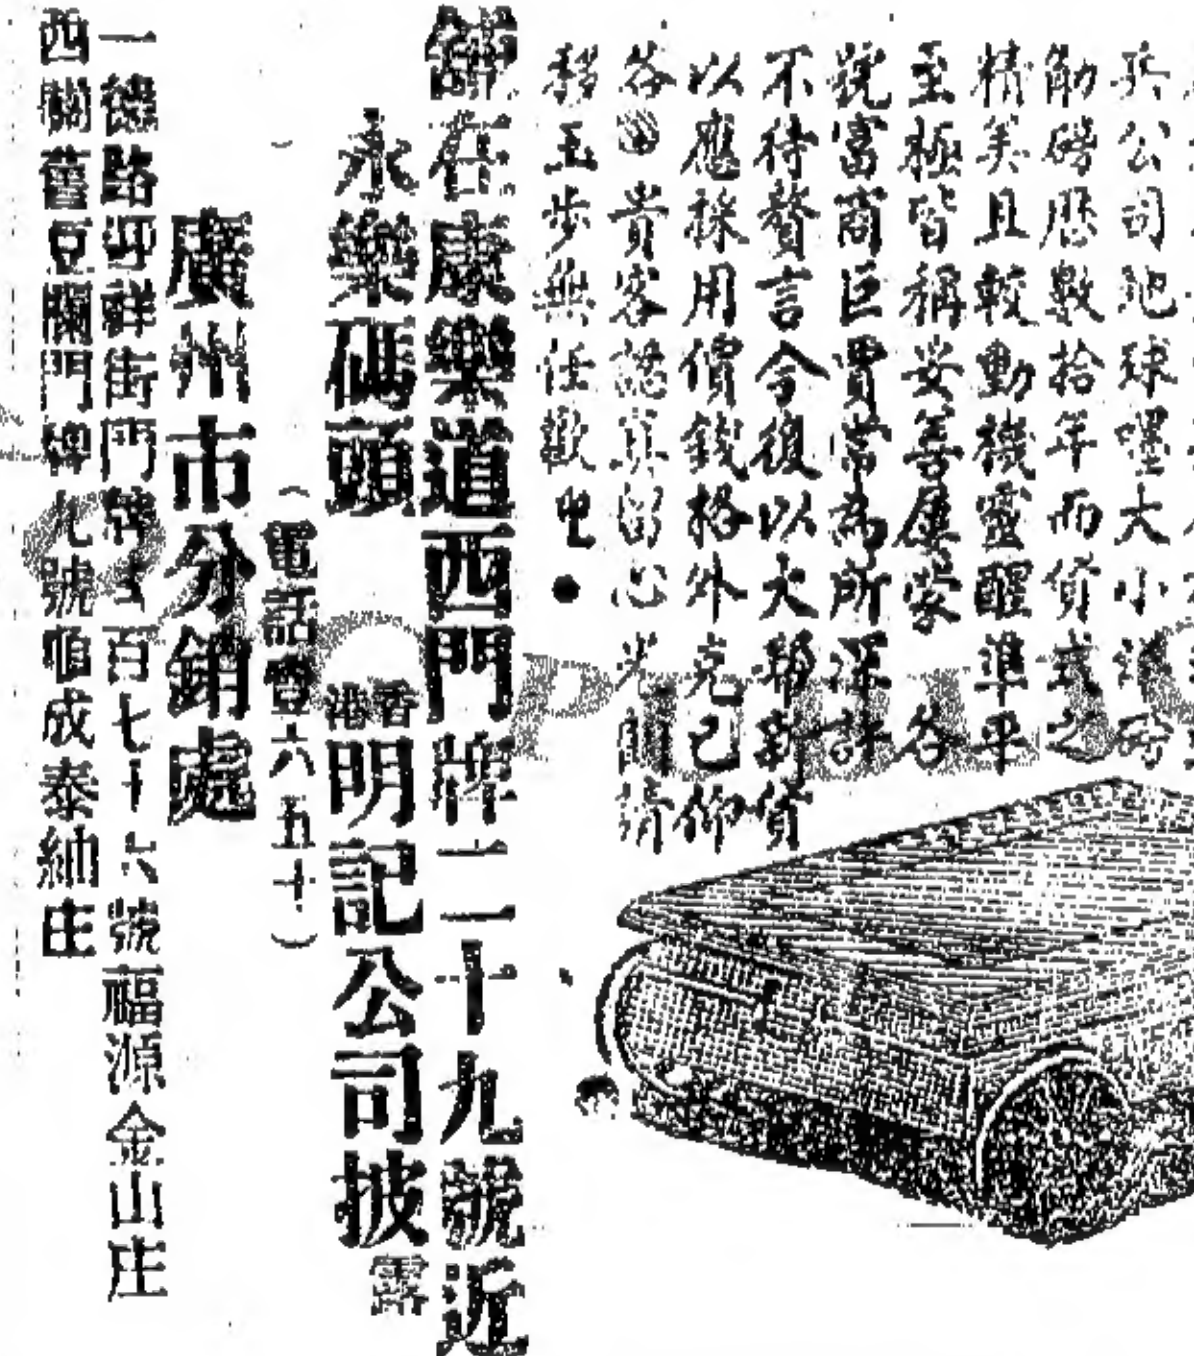 兵公司地球嘜大小送磅
勛磅歷數拾年而貨式之
精美且較動機靈醒準平
至極皆稱妥善屢蒙 各
號富商巨賈常為所深許
不待贅言今復以大幫新貨
以應採用價錢格外克已仰
各 貴客認真留心光顧請
移玉步無任歡
舖在康樂道西門牌二十九號近
永樂碼頭 香港明記公司披露
(電話壹六五十)
廣州市分銷處
一德路迎祥街門牌百七十六號福源金山庄
西關舊豆欄門牌九號順成泰紬庄